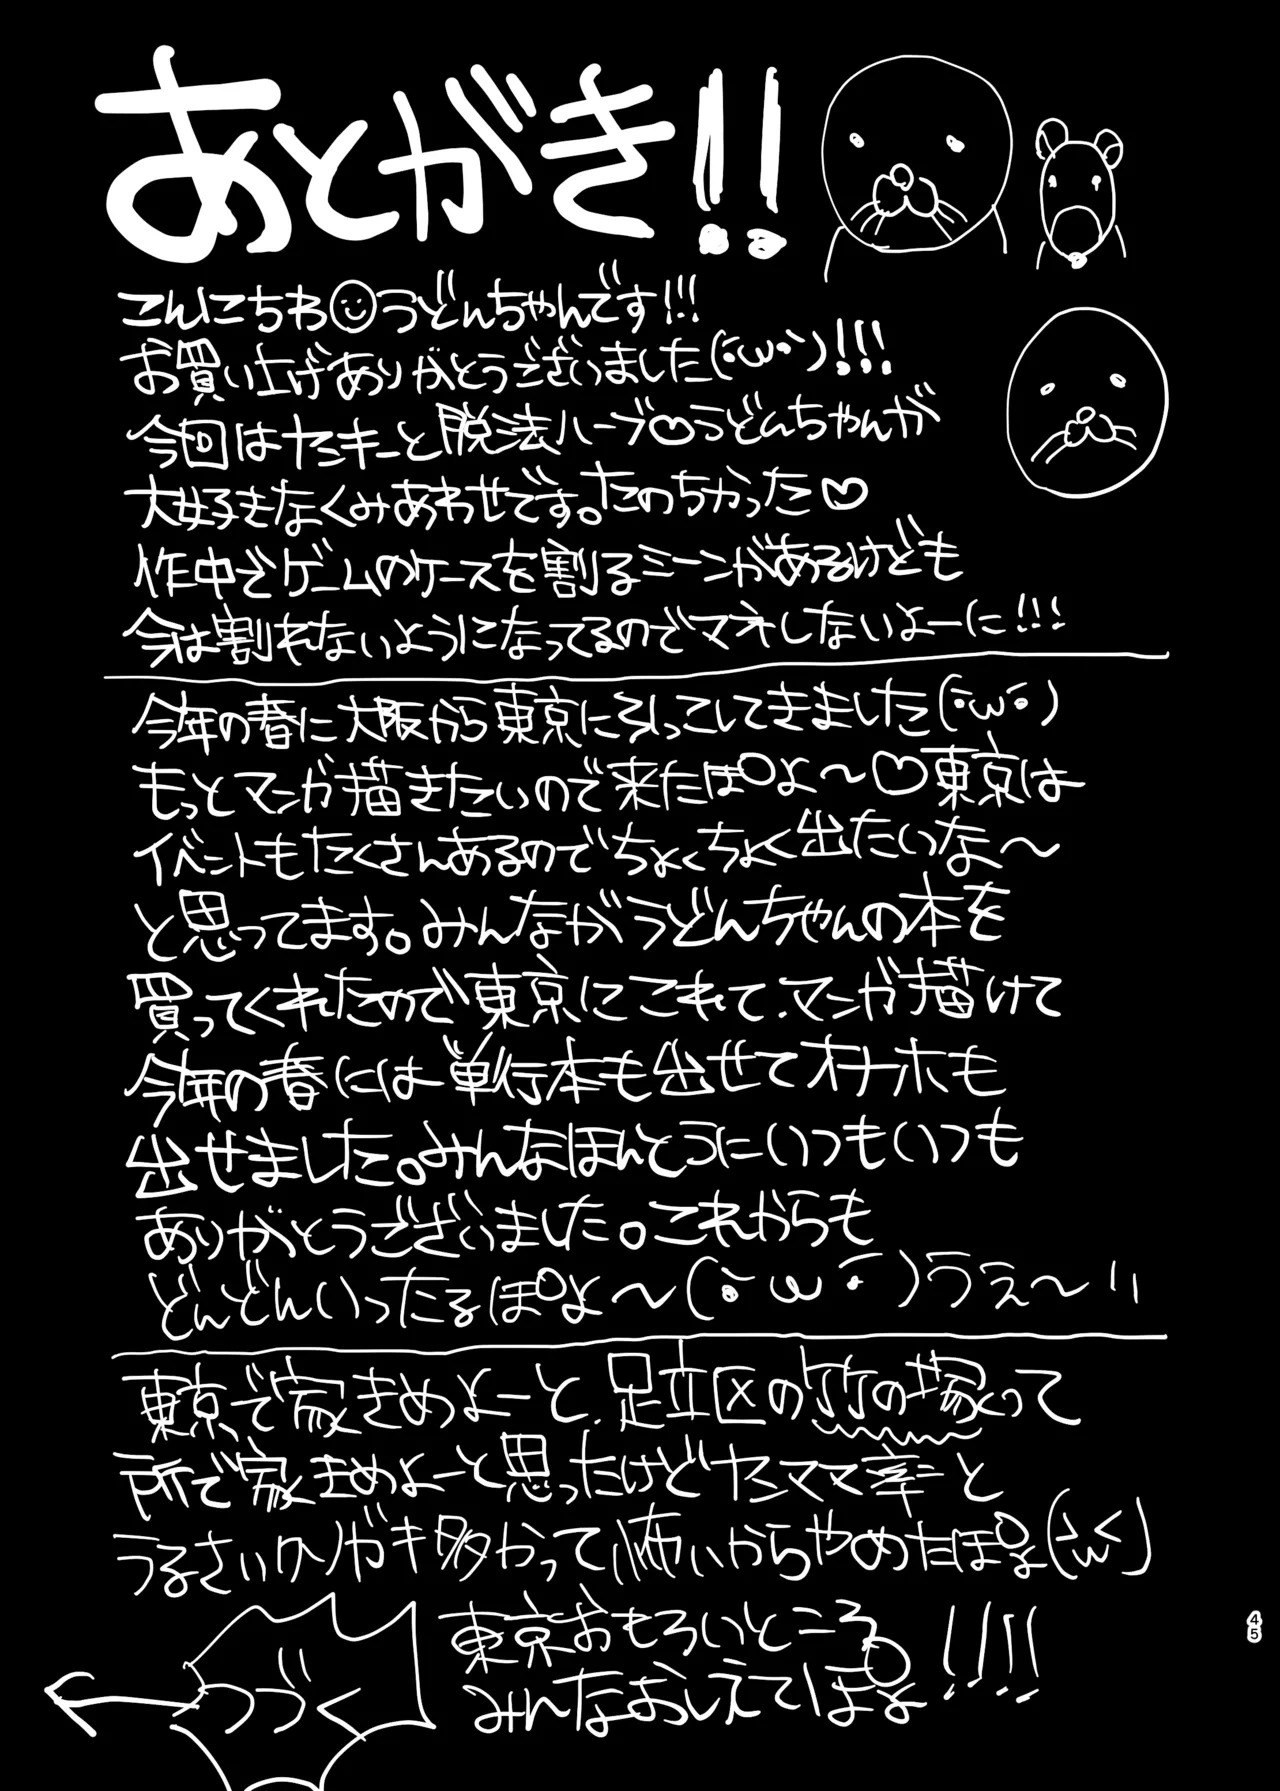 あとがき!!
こんにちわ うどんちゃんです!!!
お買い上げありがとうございました(・ω・)!!!
今回はヤミキーと脱法ハーブ♡うどんちゃんが
大好きなくみあわせです。たのちかった♡
作中でゲームのケースを割るシーンがあるけども
今は割れないようになってるのでマネしないよーに!!!
今年の春に大阪から東京にひっこしてきました(・ω・)
もっとマンガ描きたいので来たぽよ～♡東京は
イベントもたくさんあるのでちょくちょく出たいな～
と思ってます。みんながうどんちゃんの本を
買ってくれたので東京にこれて、マンガ描けて
今年の春には単行本も出せてオナホも
出せました。みんなほんとうにいつもいつも
ありがとうございました。これからも
どんどんいったるぽよ～(・ω・)うえ～!!
東京で家きめよーと、足立区の竹の塚って
所で家きめよーと思ったけどヤミママ率と
うるさいクソガキ多かって怖いからやめたぽよ(>ω<)
東京おもろいところ
みんなおしえてぽよ!!!!
つづく
45